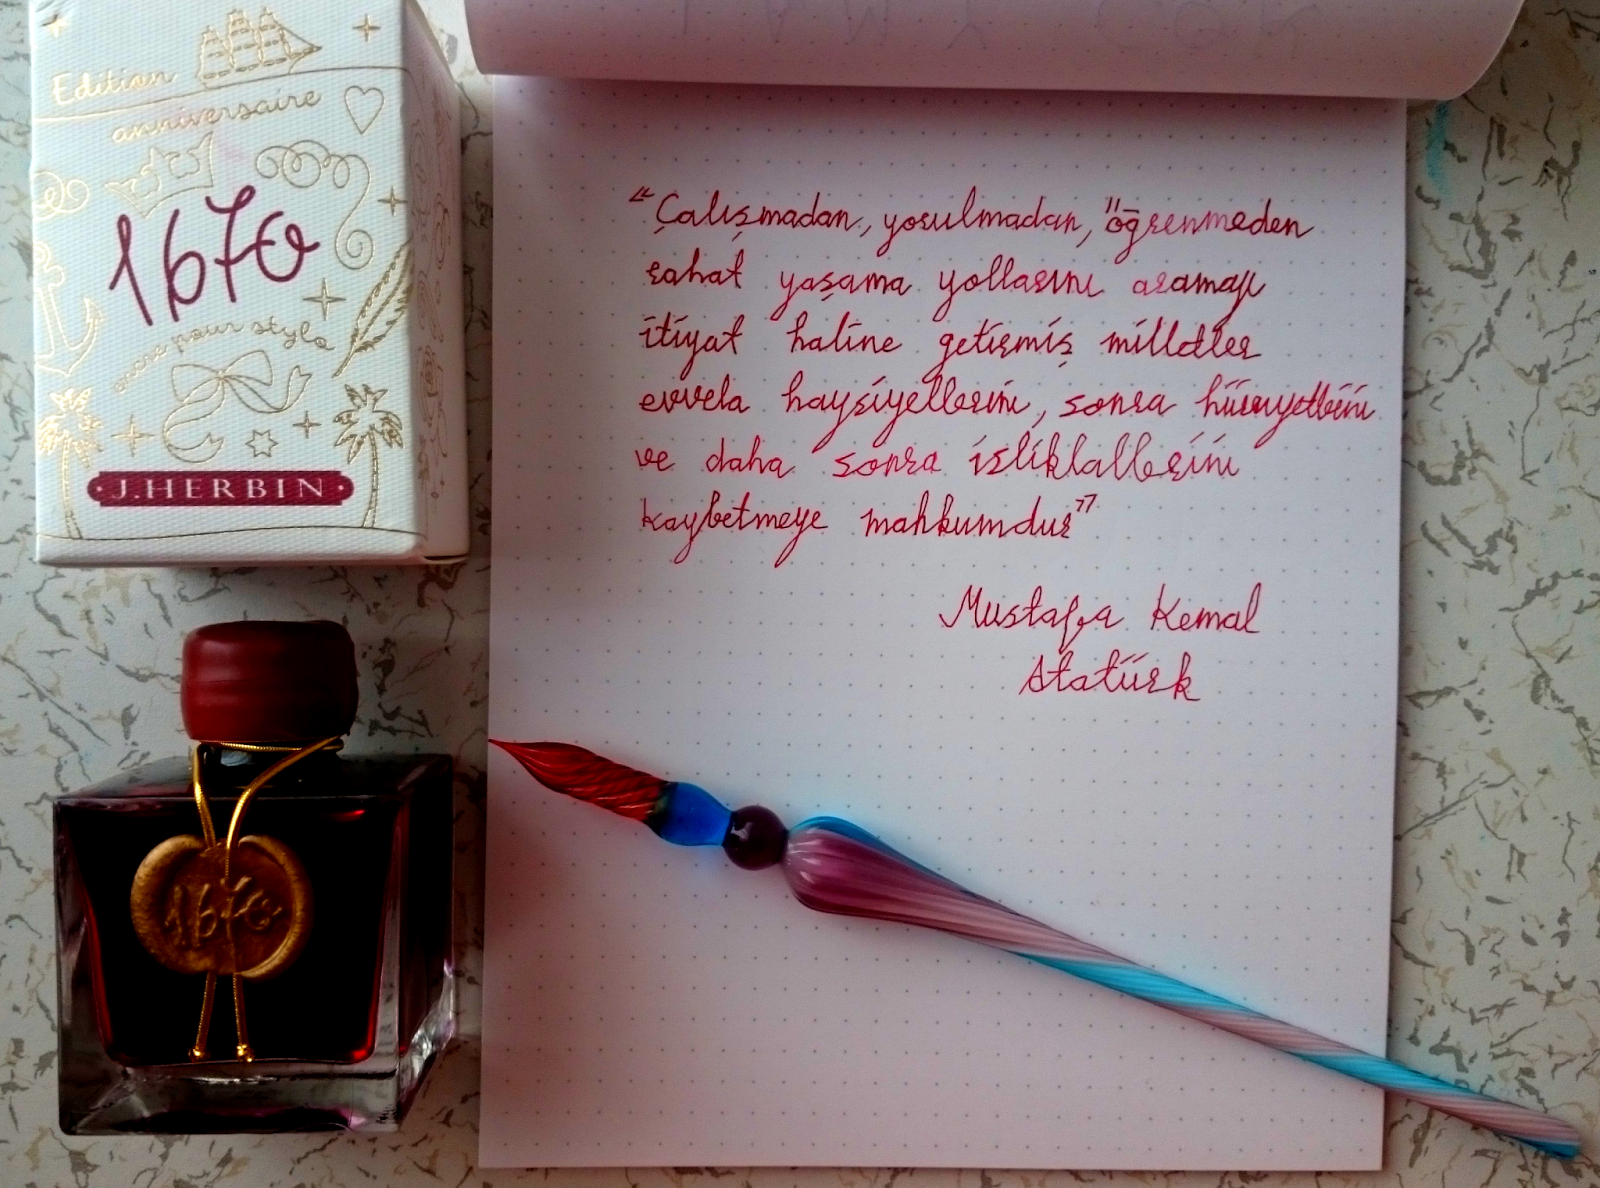 Edition
anniversaire
1670
encre pour stylo
J.HERBIN
1670
"Çalışmadan, yorulmadan, öğrenmeden
rahat yaşama yollarını aramayı
itiyat haline getirmiş milletler
evvela haysiyetlerini, sonra hürriyetlerini
ve daha sonra istiklallerini
kaybetmeye mahkumdur"
Mustafa Kemal
Atatürk